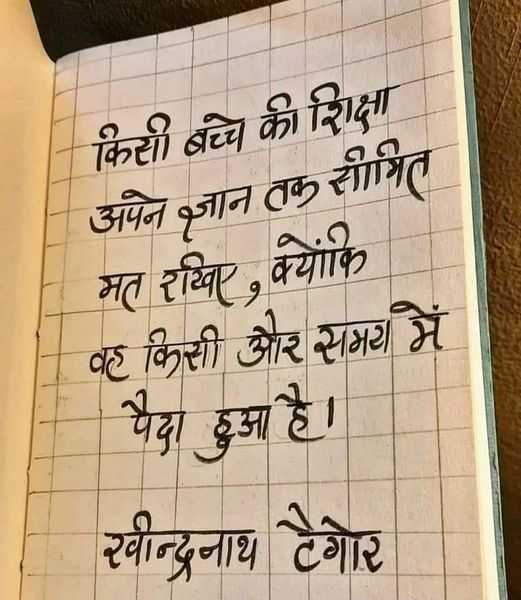 किसी बच्चे की शिक्षा
अपने ज्ञान तक सीमित
मत रखिए, क्योंकि
वह किसी और समय में
पैदा हुआ है।
रवीन्द्रनाथ टैगोर